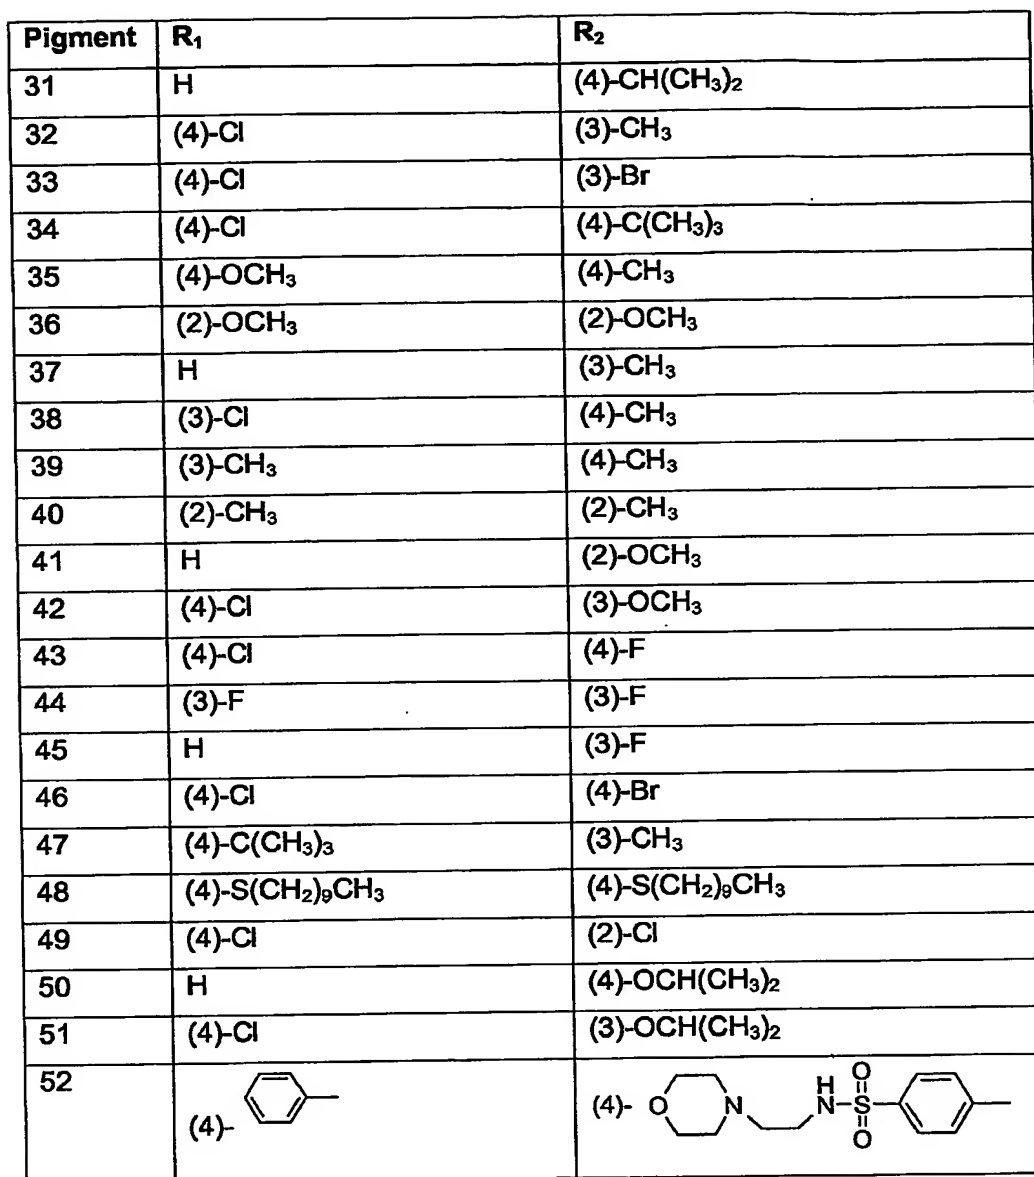 Pigment R₁ R₂
31 H (4)-CH(CH₃)₂
32 (4)-Cl (3)-CH₃
33 (4)-Cl (3)-Br
34 (4)-Cl (4)-C(CH₃)₃
35 (4)-OCH₃ (4)-CH₃
36 (2)-OCH₃ (2)-OCH₃
37 H (3)-CH₃
38 (3)-Cl (4)-CH₃
39 (3)-CH₃ (4)-CH₃
40 (2)-CH₃ (2)-CH₃
41 H (2)-OCH₃
42 (4)-Cl (3)-OCH₃
43 (4)-Cl (4)-F
44 (3)-F (3)-F
45 H (3)-F
46 (4)-Cl (4)-Br
47 (4)-C(CH₃)₃ (3)-CH₃
48 (4)-S(CH₂)₉CH₃ (4)-S(CH₂)₉CH₃
49 (4)-Cl (2)-Cl
50 H (4)-OCH(CH₃)₂
51 (4)-Cl (3)-OCH(CH₃)₂
52 (4)- (4)- O N H N O S O